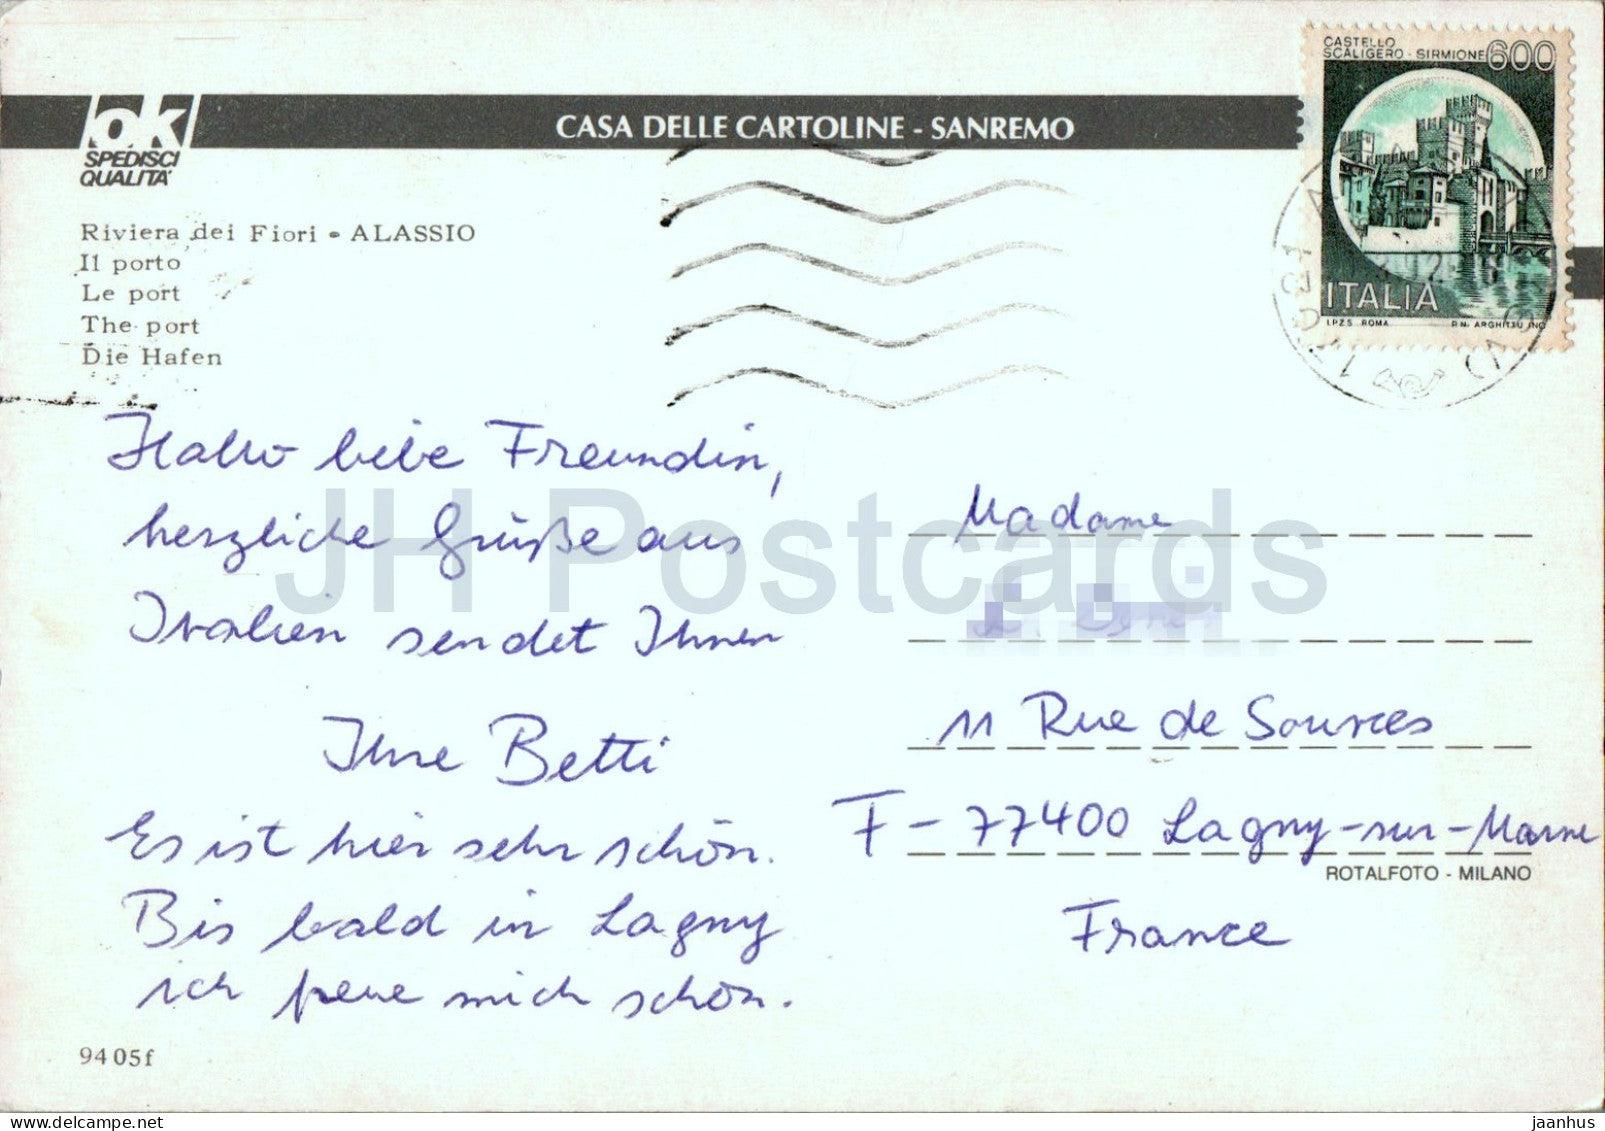 CASTELLO
SCALIGERO - SIRMIONE 600
ok
SPEDISCI
QUALITA'
CASA DELLE CARTOLINE - SANREMO
Riviera dei Fiori - ALASSIO
Il porto
Le port
The port
Die Hafen
ITALIA
I.P.Z.S. ROMA
Hallo liebe Freundin,
herzliche Grüße aus
Italien sendet Ihnen
Ihre Betti
Es ist hier sehr schön.
Bis bald in Lagny
ich freue mich schon.
Madame
11 Rue de Sources
F - 77400 Lagny-sur-Marne
France
ROTALFOTO - MILANO
94 05f
JH Postcards
jaanhus